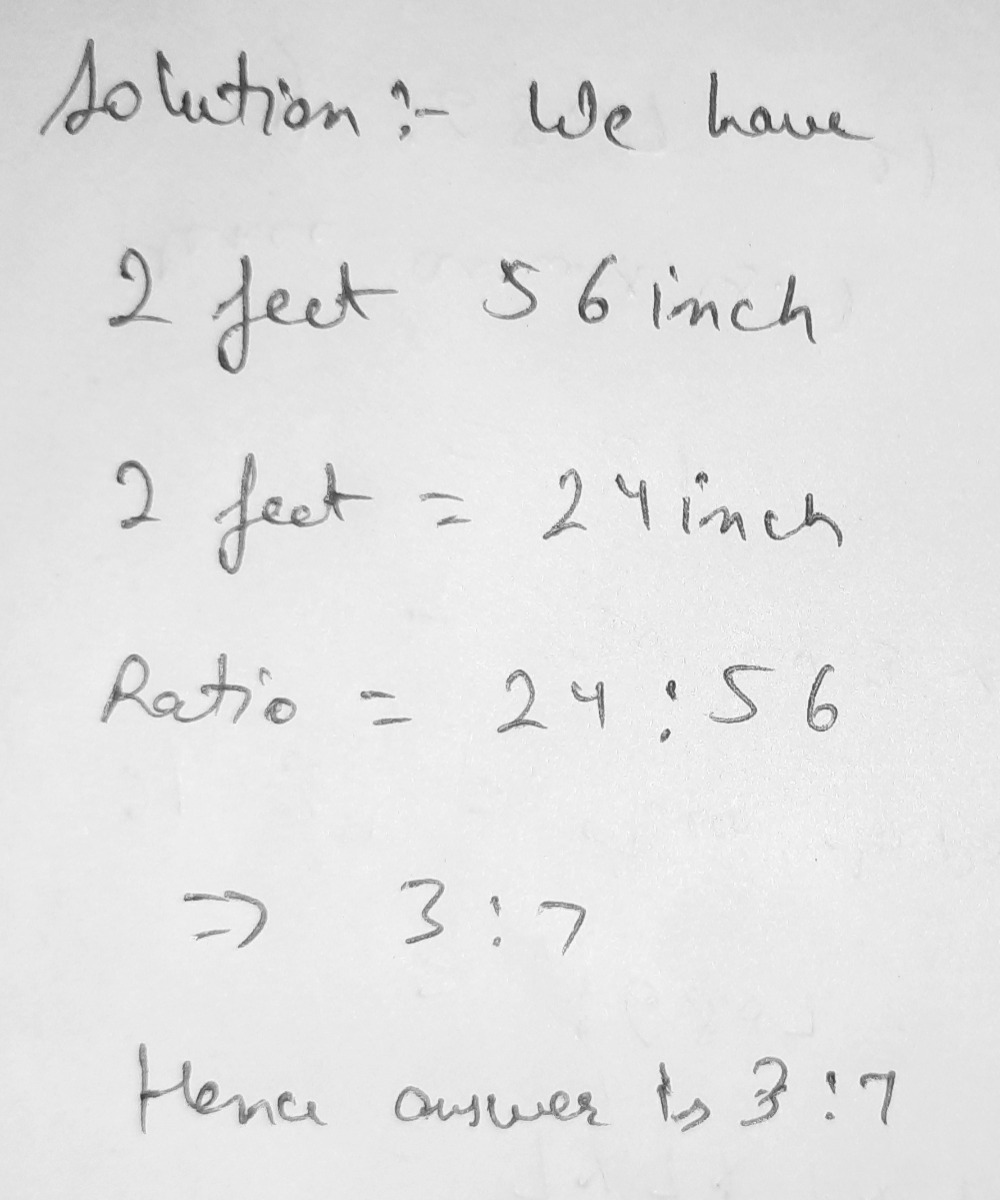 Solution :- We have
2 feet 56 inch
2 feet = 24 inch
Ratio = 24 : 56
⇒ 3 : 7
Hence answer is 3 : 7